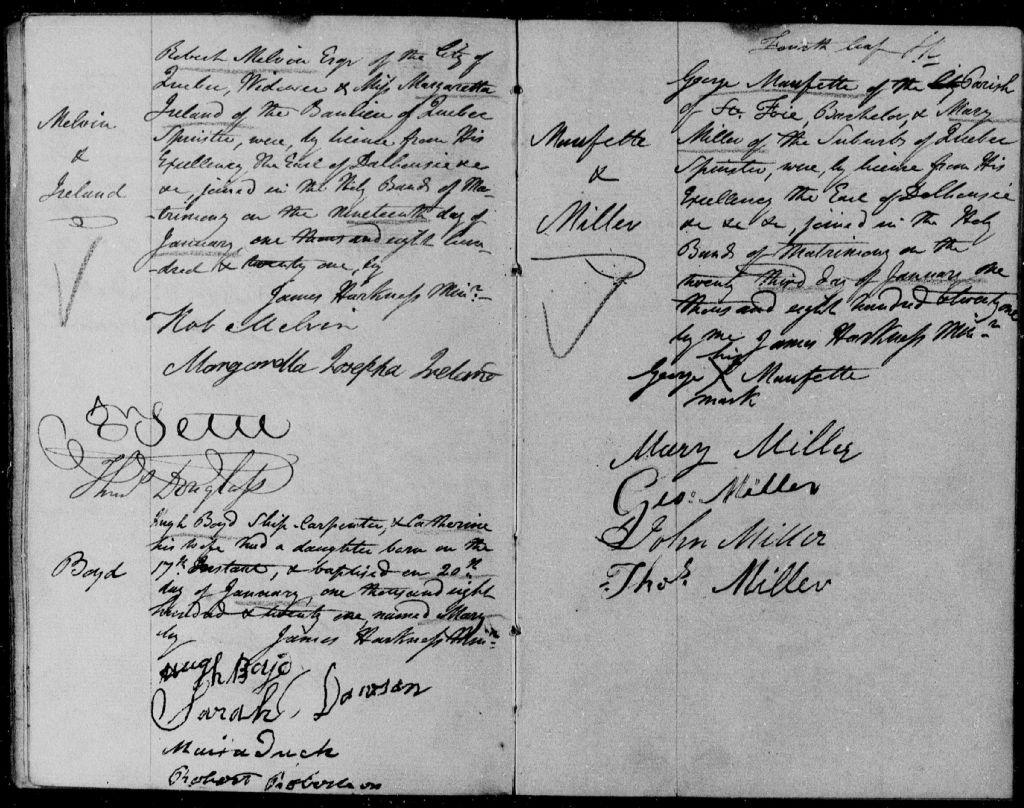 Melvin
&
Ireland
Robert Melvin Esqr of the City of
Quebec, Widower & Miss Margaretta
Ireland of the Banlieu of Quebec
Spinster, were, by licence from His
Excellency the Earl of Dalhousie &c
&c, joined in the Holy Bands of Ma-
-trimony on the nineteenth day of
January, one thousand eight hun-
-dred & twenty one, by
James Harkness Minr.
Rob Melvin
Josepha Ireland
Thos Douglass
Boyd
Hugh Boyd Ship-Carpenter, & Catherine
his wife had a daughter born on the
17th Instant, & baptised on 20th
day of January, one thousand eight
hundred & twenty one, named Mary
by James Harkness Minr.
Hugh Boyd
Sarah Dawson
Maria Tuck
Robert Robertson
Fourth leaf
Maufette
&
Miller
George Maufette of the Parish
of St. Foie, Bachelor, & Mary
Miller of the Suburbs of Quebec
Spinster, were, by licence from His
Excellency the Earl of Dalhousie
&c &c &c, joined in the Holy
Bands of Matrimony on the
twenty third day of January one
thousand eight hundred & twenty one
by me James Harkness Minr.
his
George X Maufette
mark
Mary Miller
Geo: Miller
John Miller
Thos. Miller